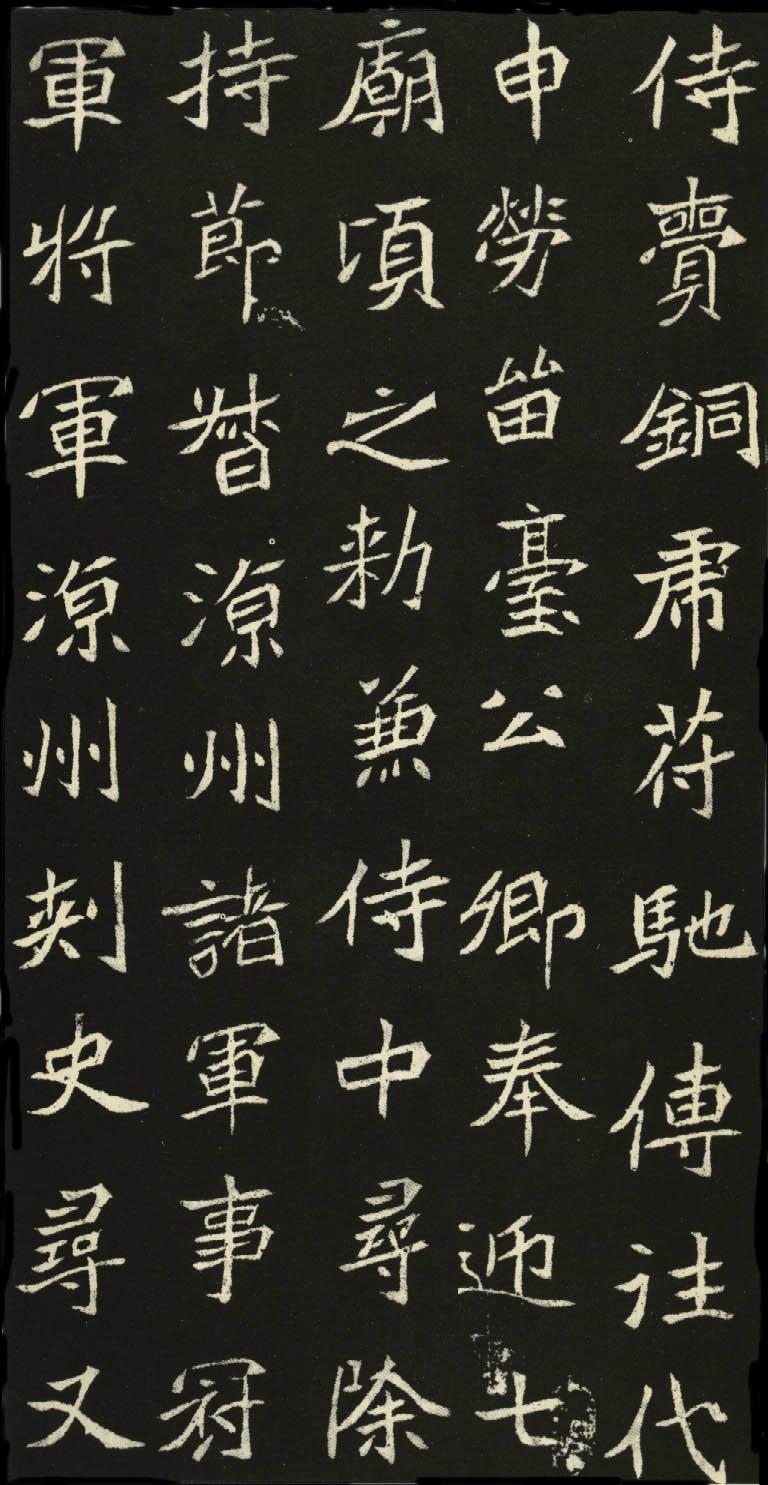 侍賷銅虎苻馳傳往代
申勞留臺公卿奉迎七
廟頃之勑兼侍中尋除
持節督涼州諸軍事冠
軍將軍涼州刾史尋又